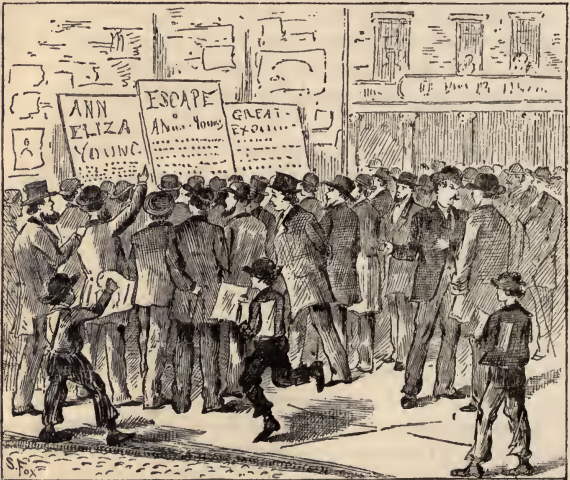 ANN
ELIZA
YOUNG
ESCAPE
o
ANN YOUNG
GREAT
S. Fox